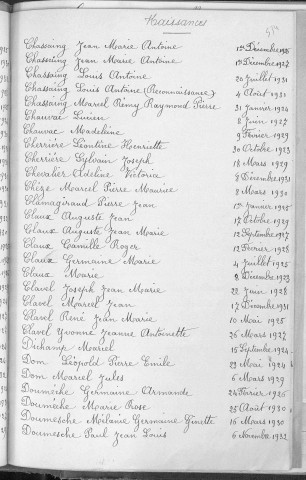 Naissances
Chassaing Jean Marie Antoine 1er Décembre 1925
Chassaing Jean Marie Antoine 1er Décembre 1927
Chassaing Louis Antoine 20 Juillet 1931
Chassaing Louis Antoine (Reconnaissance) 4 Août 1931
Chassaing Marcel Rémy Raymond Pierre 31 Janvier 1924
Chauvac Lucien 8 Juin 1927
Chauvac Madeleine 9 Février 1929
Cherrière Léontine Henriette 30 Octobre 1923
Cherrière Sylvain Joseph 18 Mars 1929
Chevalier Adeline Victoria 8 Décembre 1931
Chèze Marcel Pierre Maurice 8 Mars 1930
Clamagiraud Pierre Jean 1er Janvier 1925
Claux Auguste Jean 17 Octobre 1929
Claux Auguste Jean Marie 12 Septembre 1927
Claux Camille Roger 12 Février 1928
Claux Germaine Marie 4 Juillet 1925
Claux Marie 9 Décembre 1923
Clavel Joseph Jean Marie 22 Juin 1928
Clavel Marcel Jean 17 Décembre 1931
Clavel René Jean Marie 10 Mai 1925
Clavel Yvonne Jeanne Antoinette 26 Mars 1927
Dichamp Marcel 15 Septembre 1924
Dom Léopold Pierre Emile 22 Mai 1924
Dom Marcel Jules 6 Mars 1929
Doumèche Germaine Armande 24 Février 1926
Doumèche Marie Rose 25 Août 1930
Doumesche Mélanie Germaine Ginette 16 Mars 1930
Doumesche Paul Jean Louis 6 Novembre 1932